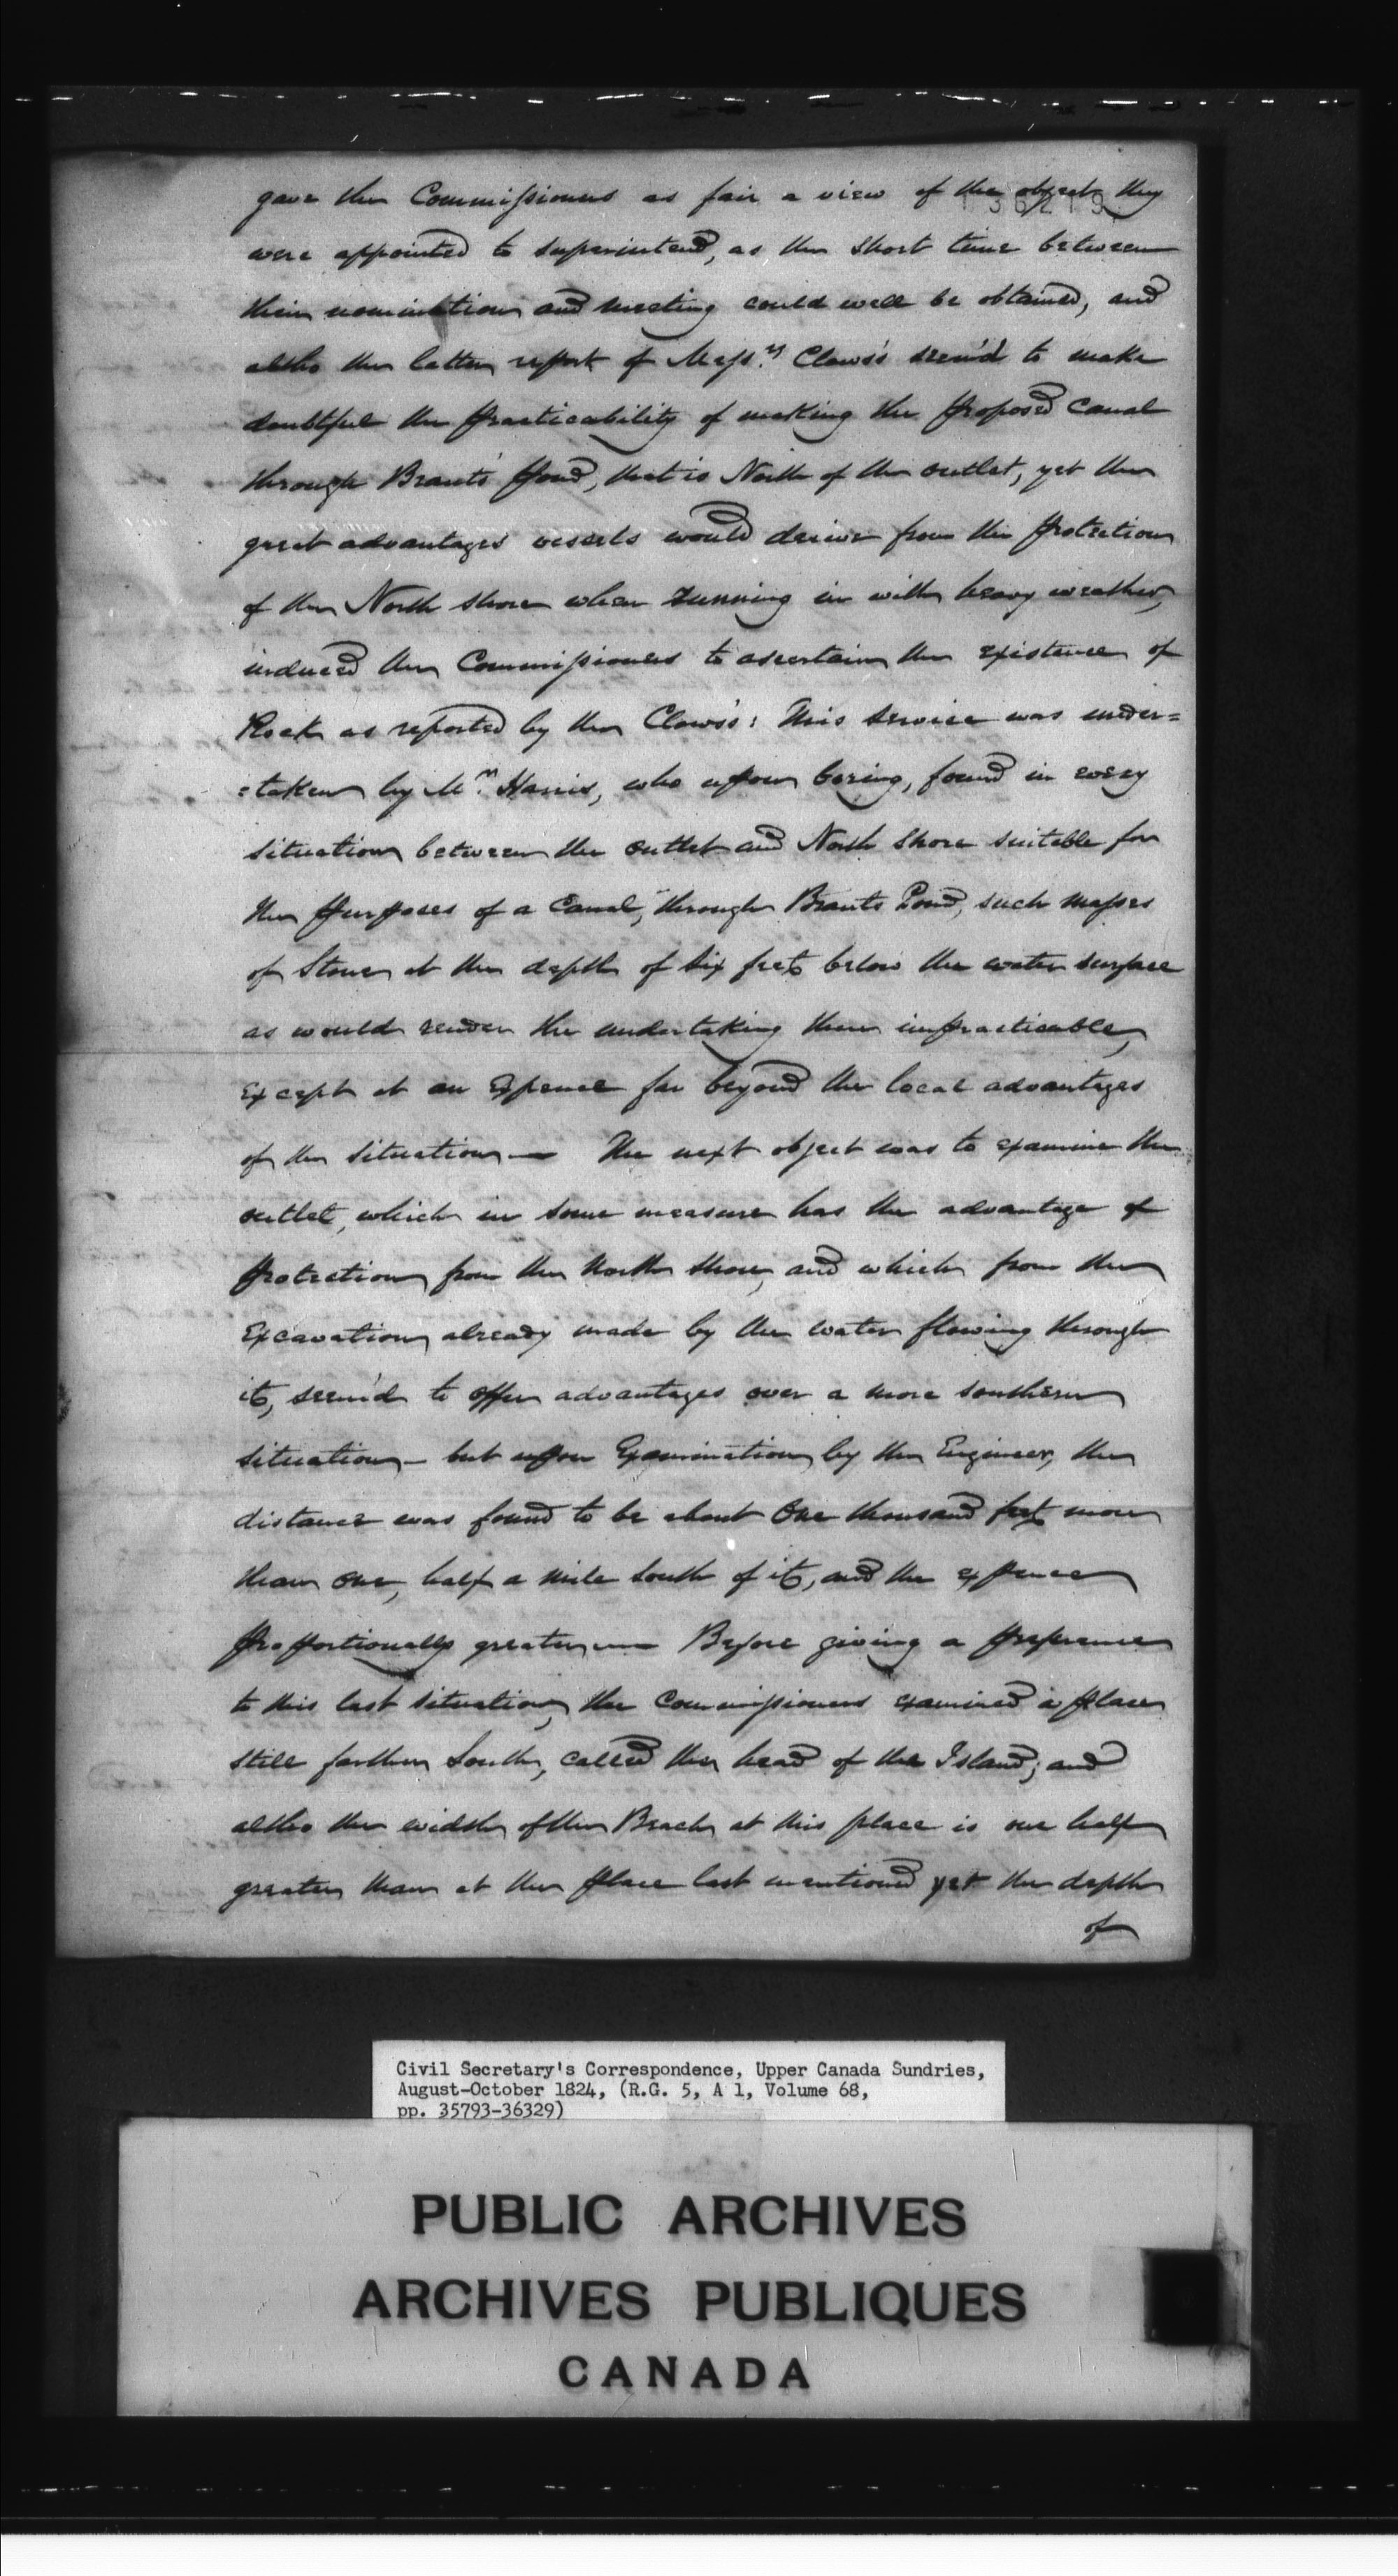 gave the Commissioners as fair a view of the object they
36219
were appointed to superintend, as the short time between
their nomination and meeting could well be obtained, and
altho the latter report of Messrs Clows's seem'd to make
doubtful the practicability of making the proposed Canal
through Brants' pond, that is North of the outlet, yet the
great advantages vessels would derive from the protection
of the North shore when running in with heavy weather,
induced the Commissioners to ascertain the existence of
Rock as reported by the Clows's: This service was under=
=taken by Mr. Harris, who upon boring, found in every
situation between the outlet and North Shore suitable for
the purposes of a Canal, through Brants Pond, such masses
of Stone at the depth of six feet below the water surface
as would render the undertaking there impracticable,
Except at an Expence far beyond the local advantages
of the situation — The next object was to examine the
outlet, which in some measure has the advantage of
protection from the North shore, and which from the
Excavation already made by the water flowing through
it, seem'd to offer advantages over a more southern
situation — but upon Examination by the Engineer, the
distance was found to be about One thousand feet more
than one, half a mile South of it, and the expence
proportionally greater — Before giving a preference
to this last situation, the Commissioners examined a place
still farther South, called the head of the Island; and
altho the width of the Beach at this place is one half
greater than at the place last mentioned yet the depth
of
Civil Secretary's Correspondence, Upper Canada Sundries,
August-October 1824, (R.G. 5, A 1, Volume 68,
pp. 35793-36329)
PUBLIC ARCHIVES
ARCHIVES PUBLIQUES
CANADA